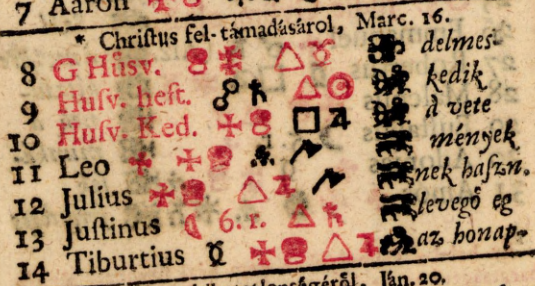 7 Aaron
* Chriſtus fel-támadásárol, Marc. 16.
8 G Húsv. ☍ ♄ delmes-
9 Huſv. heſt. ☍ ♄ kedik
10 Huſv. Ked. □ ♃ a vete
11 Leo mények
12 Julius △ ♃ nek haſzn.
13 Juſtinus ☾ 6. r. △ ♄ levegő eg
14 Tiburtius ☿ △ ♃ az honap-
Ján. 20.